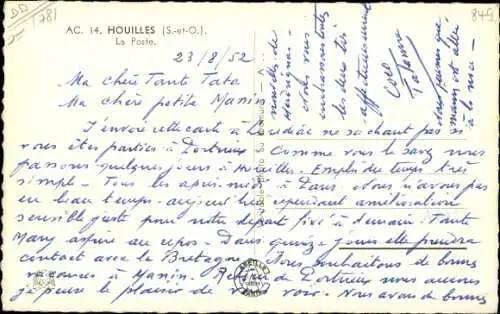 (781
849
AC. 14. HOUILLES (S.-et-O.).
La Poste.
23/8/52
Ma chère Tante Tata
Ma chère petite Mamin
J'envoie cette carte à Loudéac ne sachant pas si
vous êtes parties à Portrieux. Comme vous le savez nous
passons quelques jours à Houilles. Emploi du temps très
simple. Tous les après-midi à Paris. Nous n'avons pas
eu beau temps. aujourd'hui cependant amélioration
sensible juste pour notre départ fixé à demain. Tante
Mary aspire au repos. Dans quinze jours elle prendra
contact avec la Bretagne. Nous souhaitons de bonnes
vacances à Mamin. Retour de Portrieux nous aurons
je pense le plaisir de vous voir. Nous avons de bonnes
nouvelles de
Nous vous
embrassons toutes
les deux très
affectueusement
Coco
Tatanne
à la mer